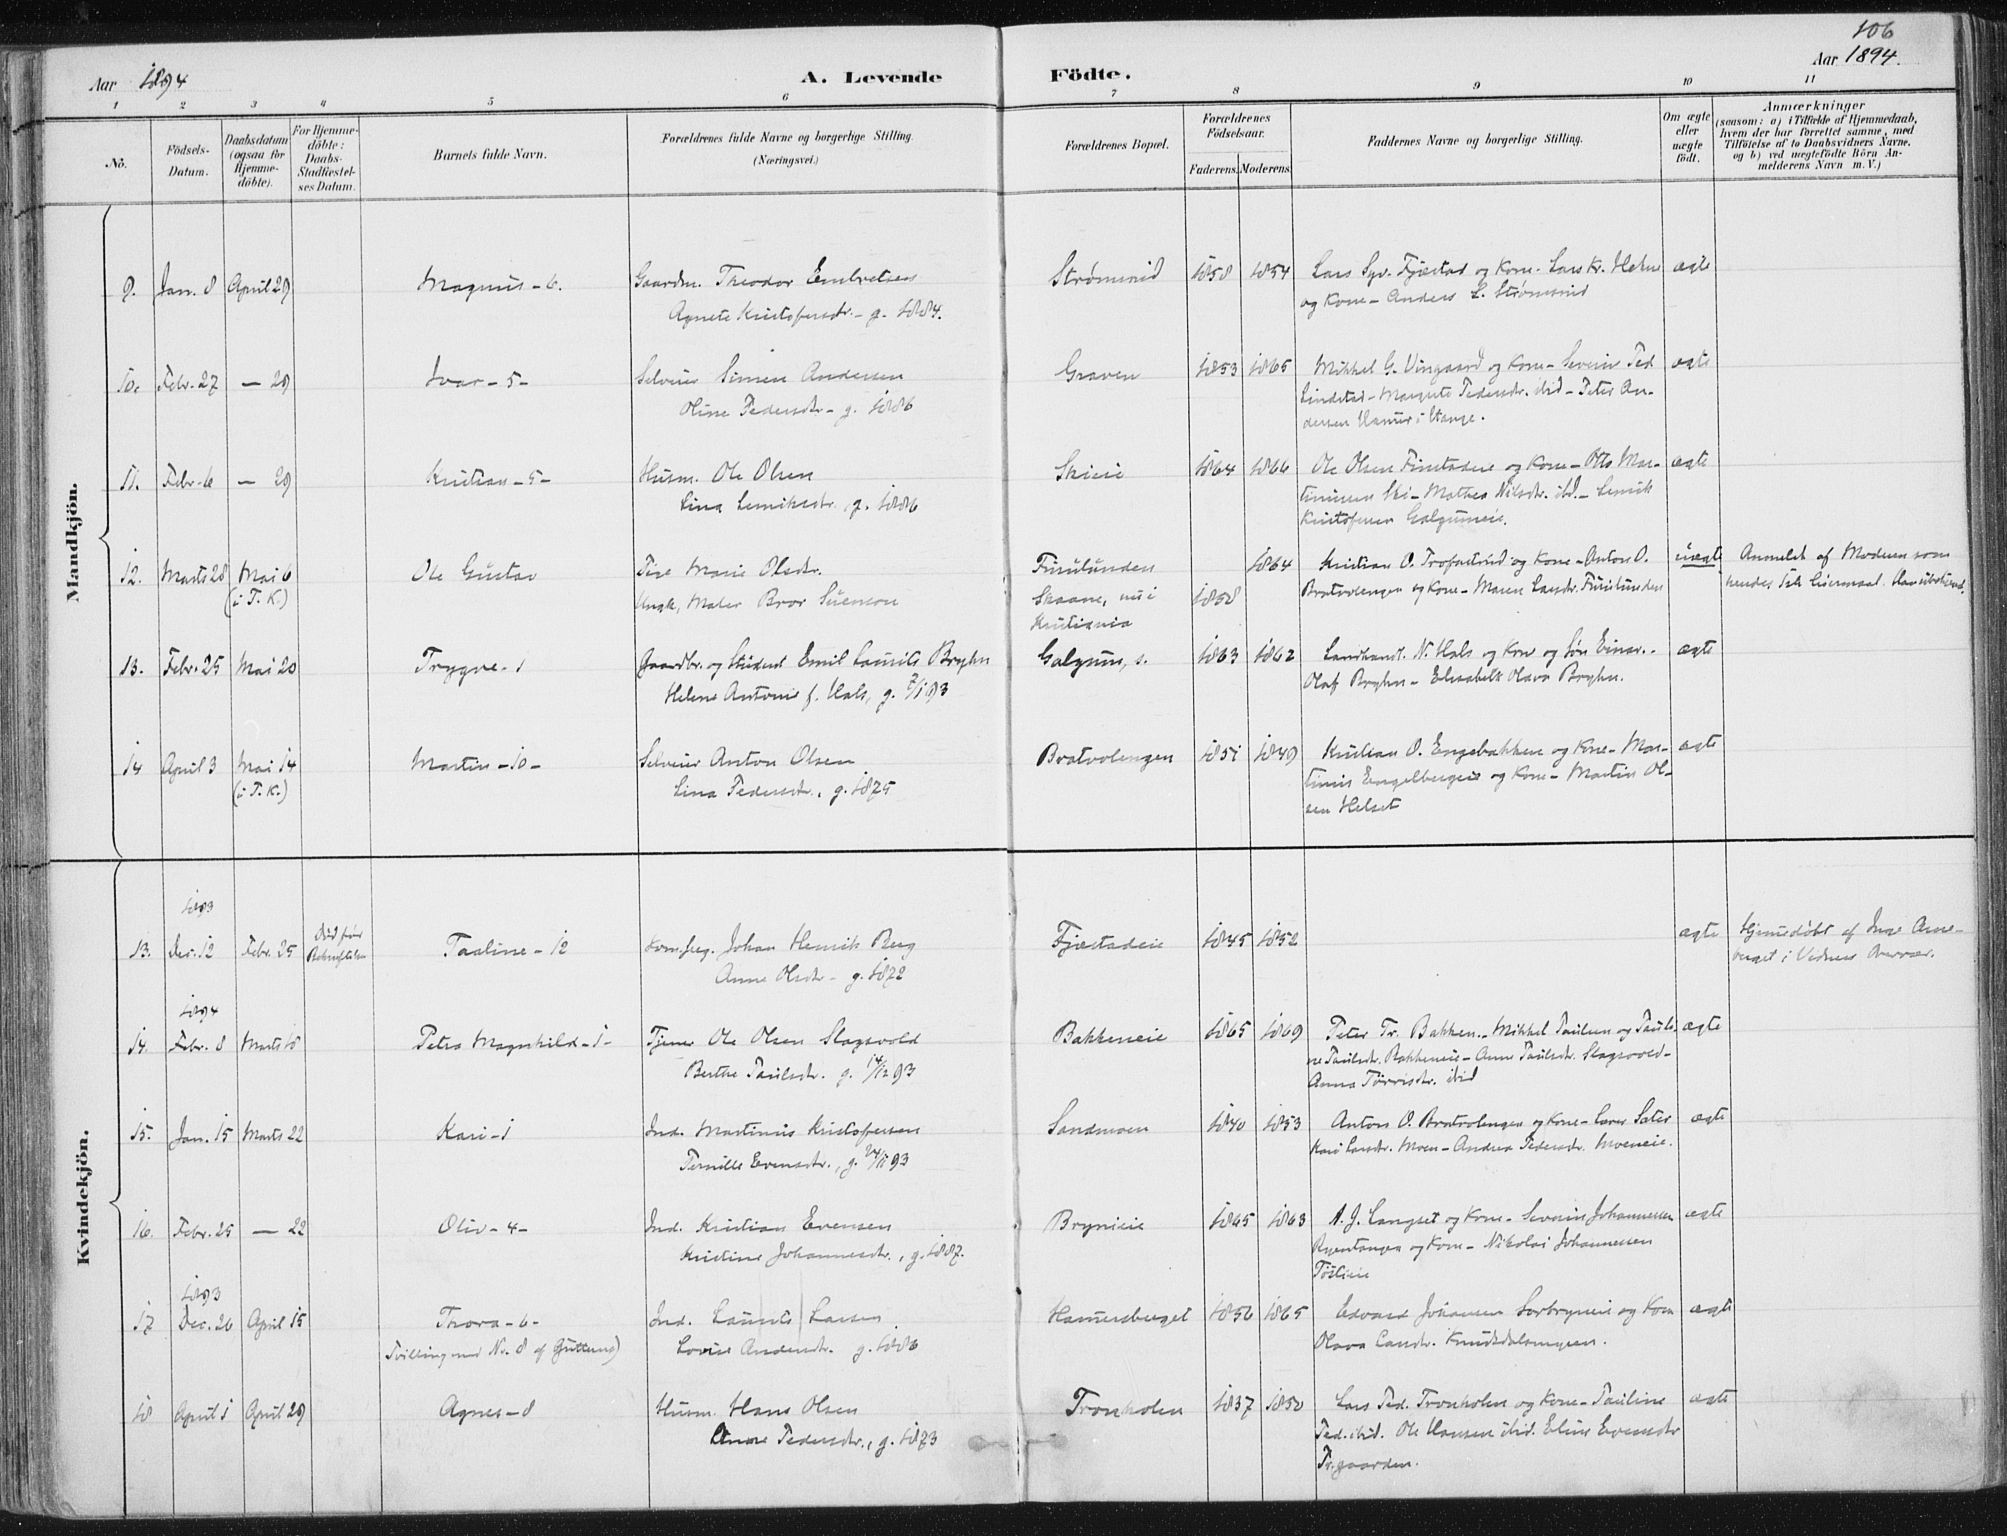 106
Aar 1894
A. Levende
Födte.
Aar 1894.
1 2 3 4 5 6 7 8 9 10 11
No.
Födsels-
Datum.
Daabsdatum
(ogsaa for
Hjemme-
döbte).
For Hjemme-
döbte:
Daabs-
Stadfæstel-
ses Datum.
Barnets fulde Navn.
Forældrenes fulde Navne og borgerlige Stilling.
(Næringsvei.)
Forældrenes Bopæl.
Forældrenes
Födselsaar.
Faderens. Moderens.
Faddernes Navne og borgerlige Stilling.
Om ægte
eller
uægte
født.
Anmærkninger
(saasom: a) i Tilfælde af Hjemmedaab,
hvem der har forrettet samme, med
Tilföielse af to Daabsvidners Navne.
og b) ved uægtefödte Börn An-
melderens Navn m. V.)
Mandkjön.
9. Jan. 8 April 29 Magnus - 6. Gaardm. Theodor Embretsen
Agnete Kristofersdr. - g. 1884.
1858 1854 Lars Syv. Fjæstad og Kone - Lars Kr.
og Kone - Anders L. Strømsnid
ægte
10. Febr. 27 — 29 Ivar - 5 - Selveier Simen Andersen
Oline Pedersdr - g. 1886
Graven 1853 1865 Mikkel G. Vingaard og Kone - Severin Ped
Lindstad - Margrete Pedersdr. ibid - Peter An-
dersen i Stange.
ægte
11. Febr. 6 — 29 Kristian - 5 - Husm. Ole Olsen
Lina , g. 1886
1864 1866 Ole Olsen og Kone - Otto Mar-
tinusen Ski - Mathea Nilsdr. ibd. -
Kristofersen
ægte
12. Marts 28 Mai 6
(i T. K.)
Ole Gustav Marie Olsdr.
Ungk. Maler Bror Svenson
Furulunden
Skaane, nu i
Kristiania
1858 1864 Kristian O. og Kone - Anton O.
Bratvolengen og Kone - Maren Larsdr. Furulunden
uægte
Anmeldt af Moderen som
hendes
13. Febr. 25 Mai 20 Trygve - 1 Gaardbr. og Student Emil Laurits Bryhn
Helene Antonie f. Hals, g. 93
Galgum, s. 1863 1862 Landhandl. N. Hals og Kone og Søn Einar -
Olaf Bryhn - Elisabeth Olava Bryhn.
ægte
14 April 3 Mai 14
(i T. K.)
Martin - 10 - Selveier Anton Olsen
Lina Pedersdr., g. 1875
Bratvolengen 1851 1849 Kristian O. Engebakken og Kone - Mar-
tinus og Kone - Martin Ol-
sen Helset
ægte
Kvindekjön.
1893
13. Dec. 12 Febr. 25 Død før
Pauline - 12 Johan Henrik Berg
Anne Olsdr - g. 1872
Fjæstadeie 1845 1852 ægte Hjemmedøbt af Arne-
berget i Vidners Overvær.
1894
14. Febr. 8 Marts Petra Magnhild - 1 - Tjener Ole Olsen Slagsvold
Berthe Paulsdr. g. 14/12 93
Bakkeneie 1865 1869 Peter Tr. Bakken - Mikkel Paulsen og Pauli-
ne Paulsdr. Bakkeneie - Anne Paulsdr. Slagsvold -
Anna ibid
ægte
15. Jan. 15 Marts 22 Kari - 1 Ind. Martinus Kristofersen
Pernille Evensdr., g. 93
Sandmoen 1840 1853 Anton O. Bratvolengen og Kone - Lars
Kari Larsdr. Moen - Andrea Pedersdr. Moeneie.
ægte
16. Febr. 25 — 22 Oliv - 4 - Ind. Kristian Evensen
Kristine Johannesdr., g. 1887.
Brynieie 1865 1863 A. J. Langset og Kone - Severin Johannessen
og Kone - Nikolai Johannessen
ægte
1893
17 Dec. 26 April 15 Thora - 6 -
Tvilling med No. 8 af Guttene)
Ind. Laurits Larsen
Lovise Andersdr. g. 1886
Hamersberget 1856 1865 Edvard Johansen og Kone
Olava Larsdr.
ægte
18 April 1 April 29 Agnes - 8 Husm. Hans Olsen
Pedersdr., g. 1873
Tronholen 1837 1850 Lars Ped. Tronholen og Kone - Pauline
Ped. ibid. Ole Hansen ibid. Eline Evensdr
Pr.gaarden.
ægte